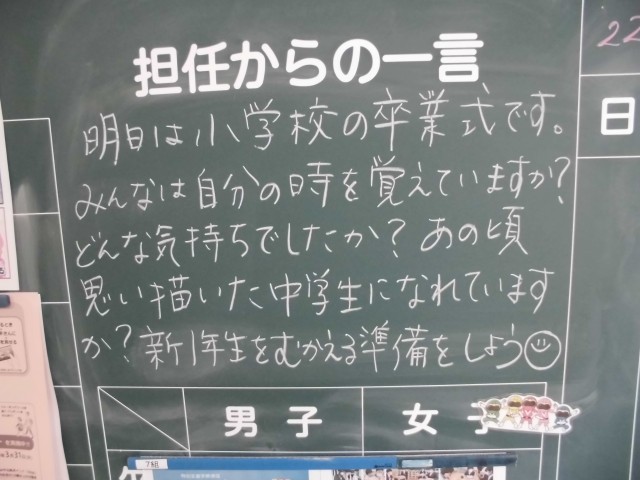 担任からの一言
明日は小学校の卒業式です。
みんなは自分の時を覚えていますか?
どんな気持ちでしたか? あの頃
思い描いた中学生になれています
か? 新1年生をむかえる準備をしよう
22
日
男子
女子
7組